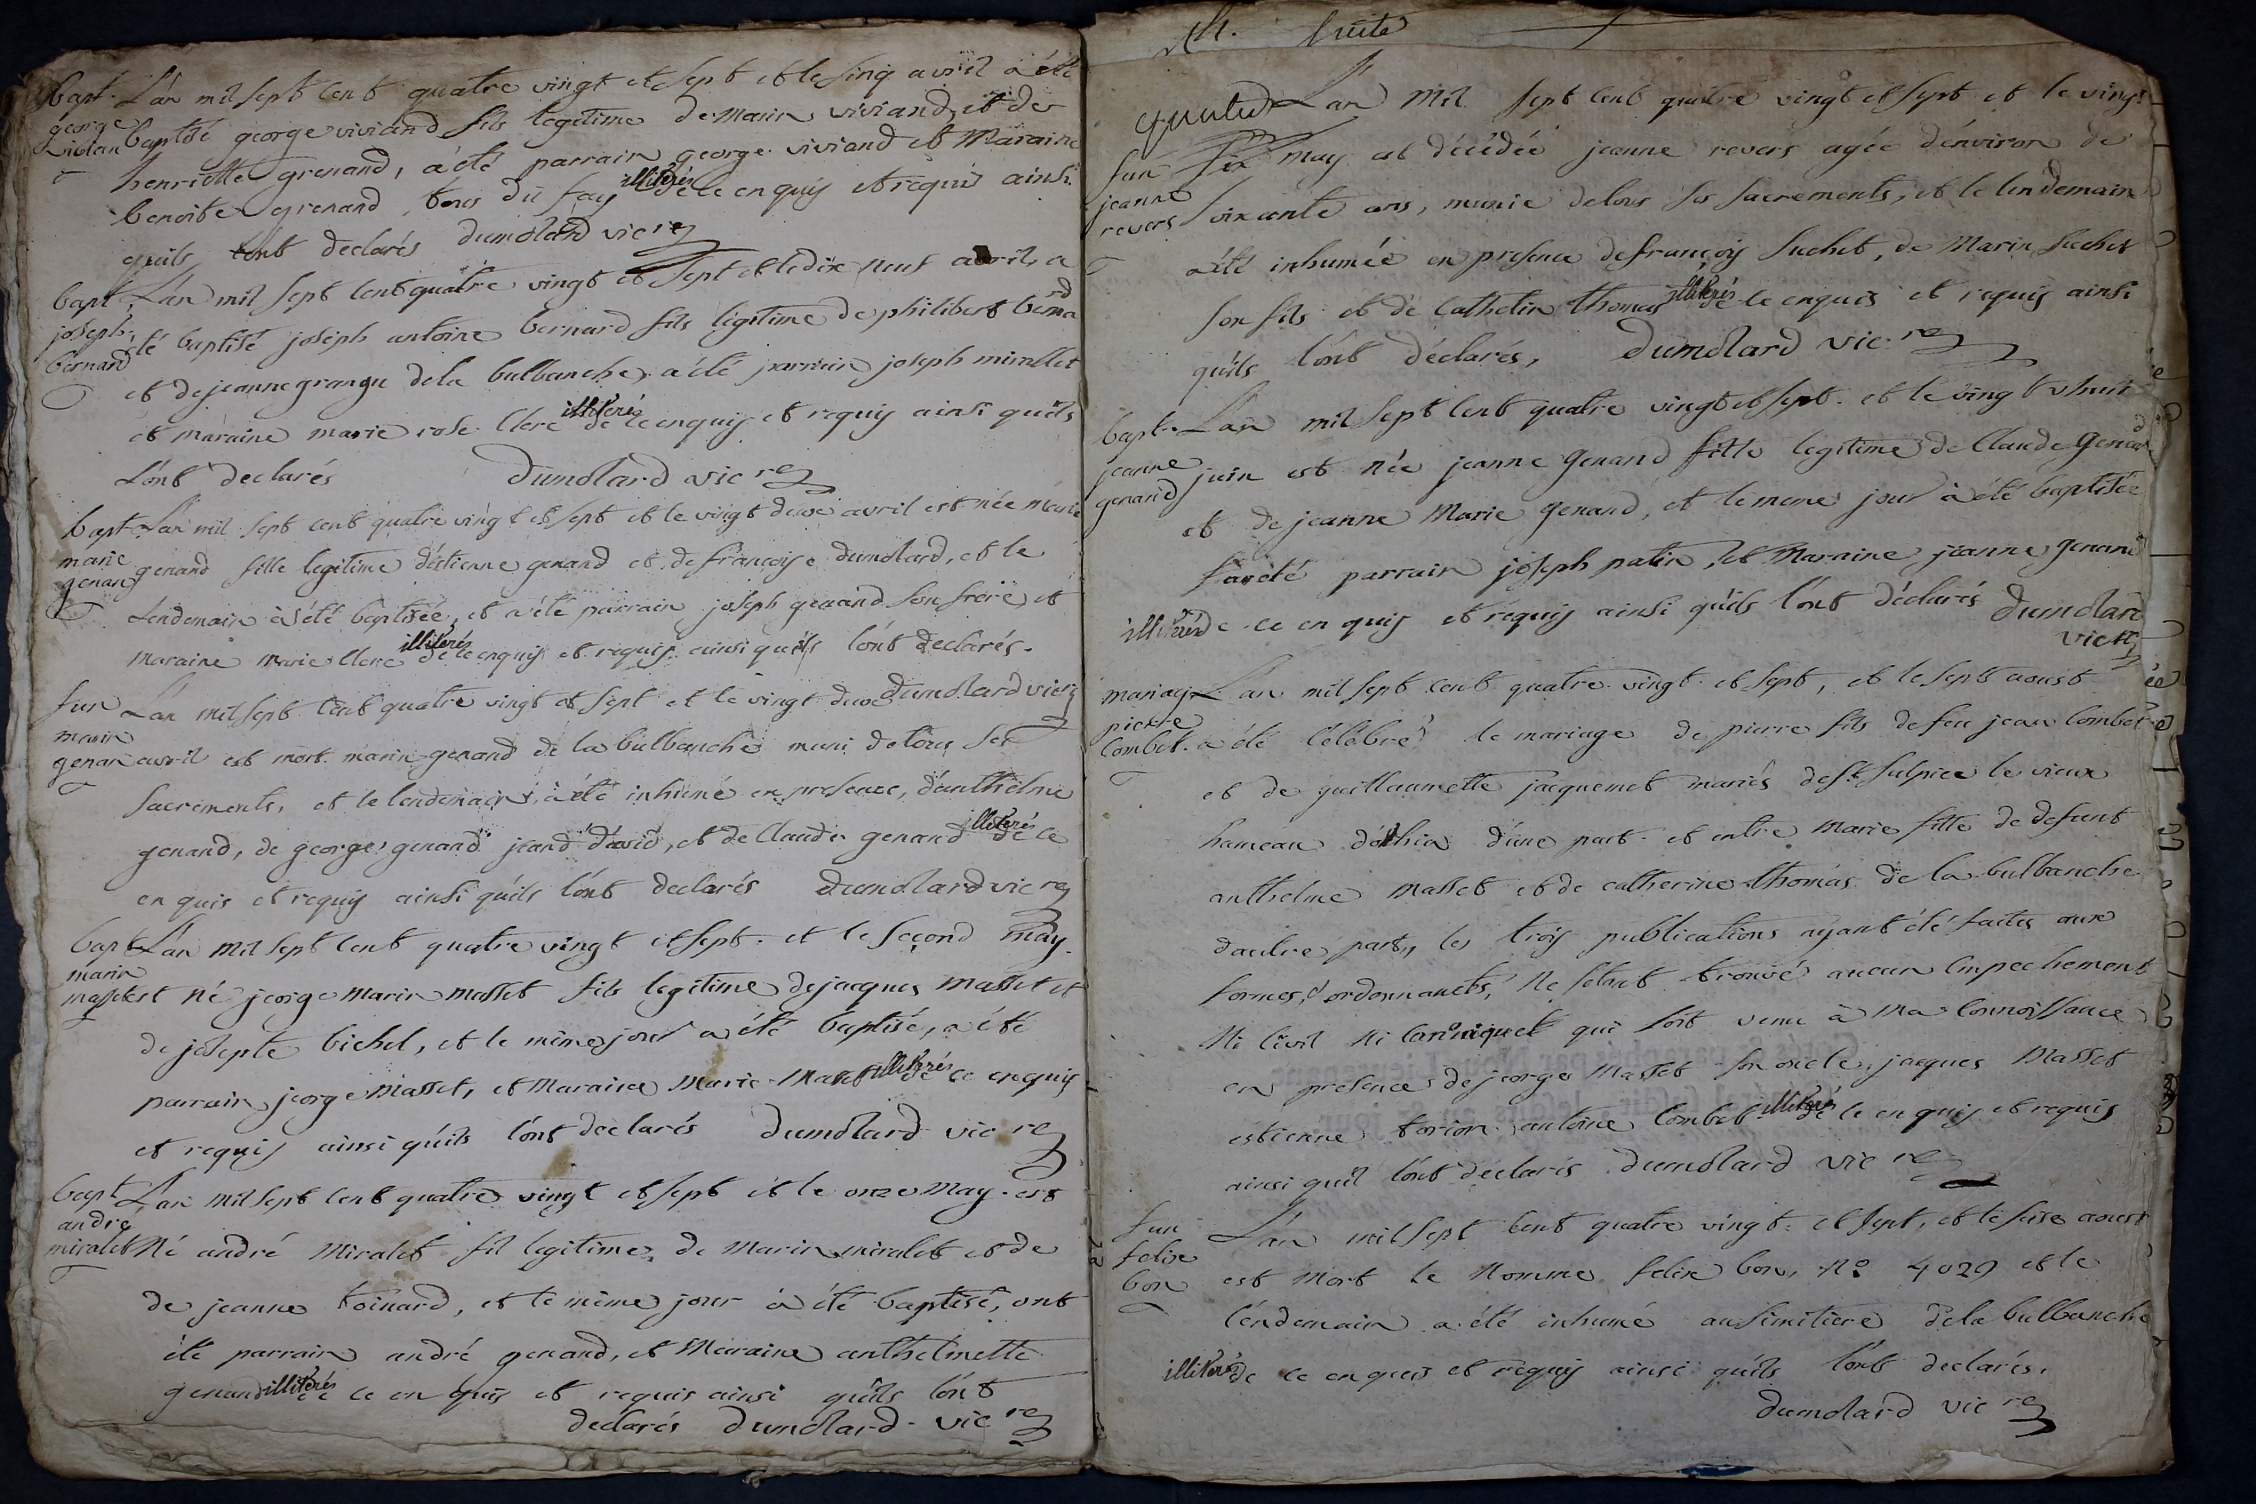 bapt. L'an mil sept cent quatre vingt et sept et le sinq avril a été
george
vivian baptisé george viviand fils legitime de marin viviand, et de
henriette grenand, a été parrain george viviand et Maraine
illiterés
benoite grenand, tous du fay de ce enquis et requis ainsi
quils l'ont declarés dumolard vicre
bapt. L'an mil sept cent quatre vingt et sept et le dix neuf avril, a
joseph
bernard
été baptisé joseph antoine bernard fils legitime de philibert bernard
et de jeanne grangu de la bulbanche, a été parrain joseph mirallet
illiterés
et maraine marie rose Clerc de ce enquis et requis ainsi quils
L'ont declarés dumolard vicre
bapt. L'an mil sept cent quatre vingt et sept et le vingt deux avril est née marie
marie
genan genand fille legitime d'étienne genand et de françoise dumolard, et le
Lendemain a été baptisée, et a été parrain joseph genand son frère, et
illiterés
maraine marie Clerc de ce enquis et requis ainsi quils l'ont declarés.
fun L'an mil sept cent quatre vingt et sept et le vingt deux dumolard vicre
marin
genan avril est mort marin genand de la bulbanche muni de tous ses
sacrements, et le lendemain, a été inhumé en presence, d'anthelme
illiterés
genand, de george genand jeand david, et de Claude genand de ce
en quis et requis ainsi quils l'ont declarés dumolard vicre
bapt L'an mil sept cent quatre vingt et sept. et le second may.
marin
masset est né jeorge marin masset fils legitime de jacques masset et
de josepte bichel, et le même jour a été baptisé, a été
parrain jeorge masset, et Maraine marie masset illiterés de ce enquis
et requis ainsi quils l'ont declarés dumolard vicre
bapt L'an mil sept cent quatre vingt et sept et le onze may. est
andre
miralet Né andré Miralet fil legitime de Marin miralet et de
de jeanne toinard, et le même jour a été baptisé, ont
été parrain andré genand, et Maraine anthelmette
genand illiterés de ce en quis et requis ainsi quils l'ont
declarés dumolard vicre
suite
L'an Mil sept cent quatre vingt et sept et le vingt
fun six may est décédée jeanne revers agée d'environ de
jeanne
revers soixante ans, munie de tous ses sacrements, et le lendemain
a été inhumée en presence de françois suchet, de Marin suchet
illiterés
son fils et de Cathelin thomas de ce enquis et requis ainsi
quils l'ont déclarés, dumolard vicre
bapt. L'an mil sept cent quatre vingt et sept. et le vingt et huit
jeanne
genand juin est née jeanne genand fille legitime de Claude genand
et de jeanne Marie genand, et le meme jour a été baptisée
parrain joseph patin, et Maraine jeanne genand
illiterés de ce en quis et requis ainsi quils l'ont déclarés dumolard
vicre
mariage L'an mil sept cent quatre vingt et sept, et le sept aoust
pierre
Combet. a été célébré le mariage de pierre fils de feu jean Combet
et de guillaumette jacquemet mariés de st sulpice le vieux
hameau d'othia d'une part. et entre marie fille de defunt
anthelme masset et de catherine thomas de la bulbanche
d'autre part, les trois publications ayant été faites aux
formes, d'ordonnances, Ne s'étant trouvé aucun Empechement
Ni Civil Ni Canonique qui soit venu à Ma Connoissance
en presence de jeorge Masset son oncle, jacques Masset
estienne torion antoine Combet illiterés de ce en quis et requis
ainsi quil l'ont declarés dumolard vicre
fun L'an mil sept cent quatre vingt. et sept, et le seize aoust
felix
bon est Mort le Nomme felix bon, No 4029 et le
l'endemain a été inhumé au simitiere de la bulbanche
illiterés de ce en quis et requis ainsi quils l'ont declarés.
dumolard vicre